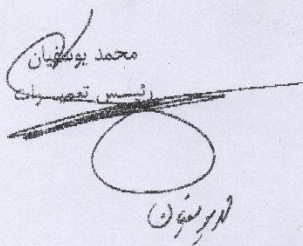 محمد یوسفیان
رئیس تعمیرات